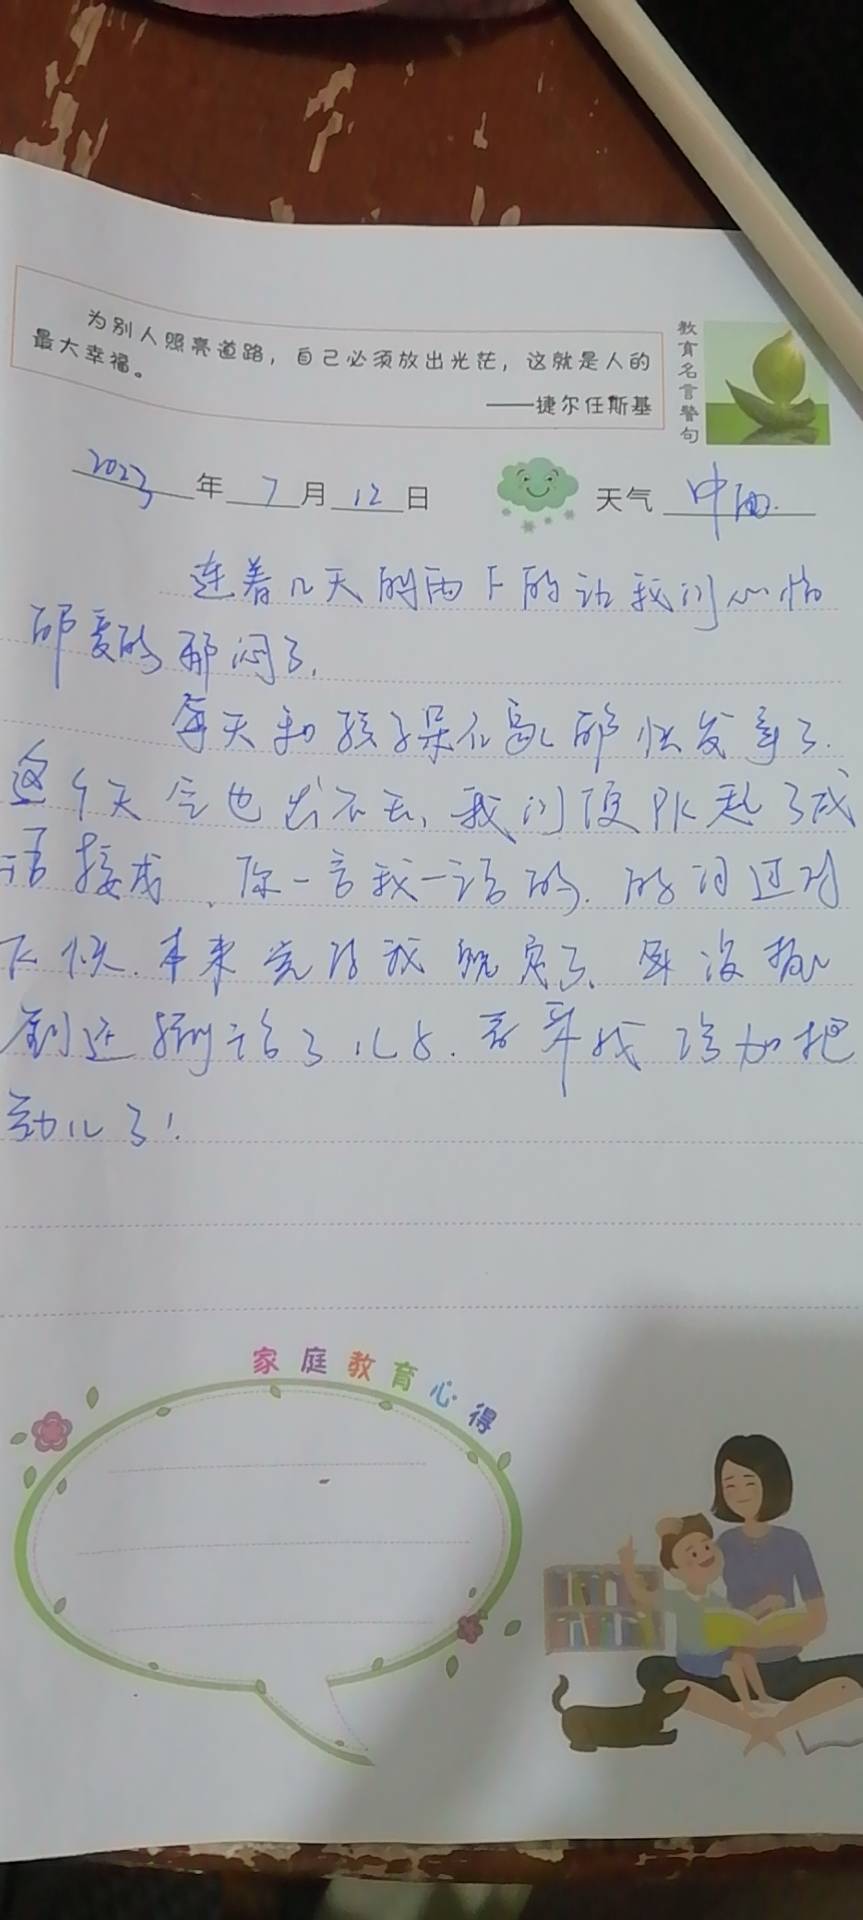 为别人照亮道路，自己必须放出光茫，这就是人的
最大幸福。
——捷尔任斯基
教育名言警句
2023年7月12日 天气 中雨
连着几天的雨下的让我们心情
都变的郁闷了.
每天和孩子呆在家都快发霉了.
这个天气也出不去,我们便PK起了成
语接龙.你一言我一语的.时间过得
飞快.本来觉得我
到还了儿子.看来我得加把
劲儿了!
家庭教育心得